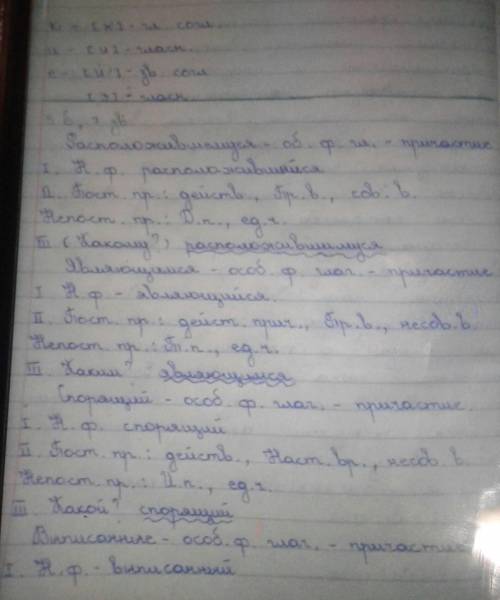 к - [к] - гл. согл.
и - [и] - гласн.
е - [й'] - зв. согл.
[э] - гласн.
5 б, 7 зв.
Расположившемуся - об. ф. гл. - причастие
I. Н.ф. расположившийся
II. Пост. пр.: действ., Пр.в., сов. в.
Непост. пр.: Д.п., ед.ч.
III (Какому?) расположившимуся
Являющимся - особ. ф. глаг. - причастие
I Н.ф - являющийся.
II. Пост. пр.: дейст. прич., Пр.в., несов.в.
Непост. пр.: Т.п., ед.ч.
III. Каким? являющимся
Спорящий - особ. ф. глаг. - причастие.
I. Н.ф. спорящий
II. Пост. пр.: действ., Наст. вр., несов. в.
Непост. пр.: И.п., ед.ч.
III. Какой? спорящий
Выписанные - особ. ф. глаг. - причастие
I. Н.ф. - выписанный